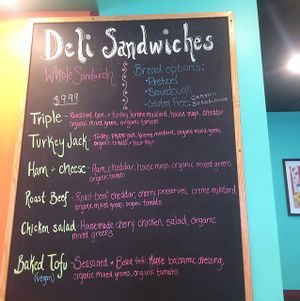 Deli Sandwiches
Whole Sandwich
$9.99
Bread options:
Pretzel
Sourdough
Gluten Free:
Triple - Roast beef, turkey, house mayo, cheddar
organic mixed greens, organic tomato
Turkey Jack - Turkey, pepper jack, creme mustard, organic mixed greens,
organic tomato, house mayo
Ham + cheese - Ham, cheddar, house mayo, organic mixed greens
organic tomato
Roast Beef - Roast beef, cheddar, cherry preserves, creme mustard,
organic mixed greens, organic tomato
Chicken salad - Homemade cherry chicken salad, organic
mixed greens
Baked Tofu - Seasoned + Baked tofu, Maple balsamic dressing,
(vegan) organic mixed greens, organic tomato